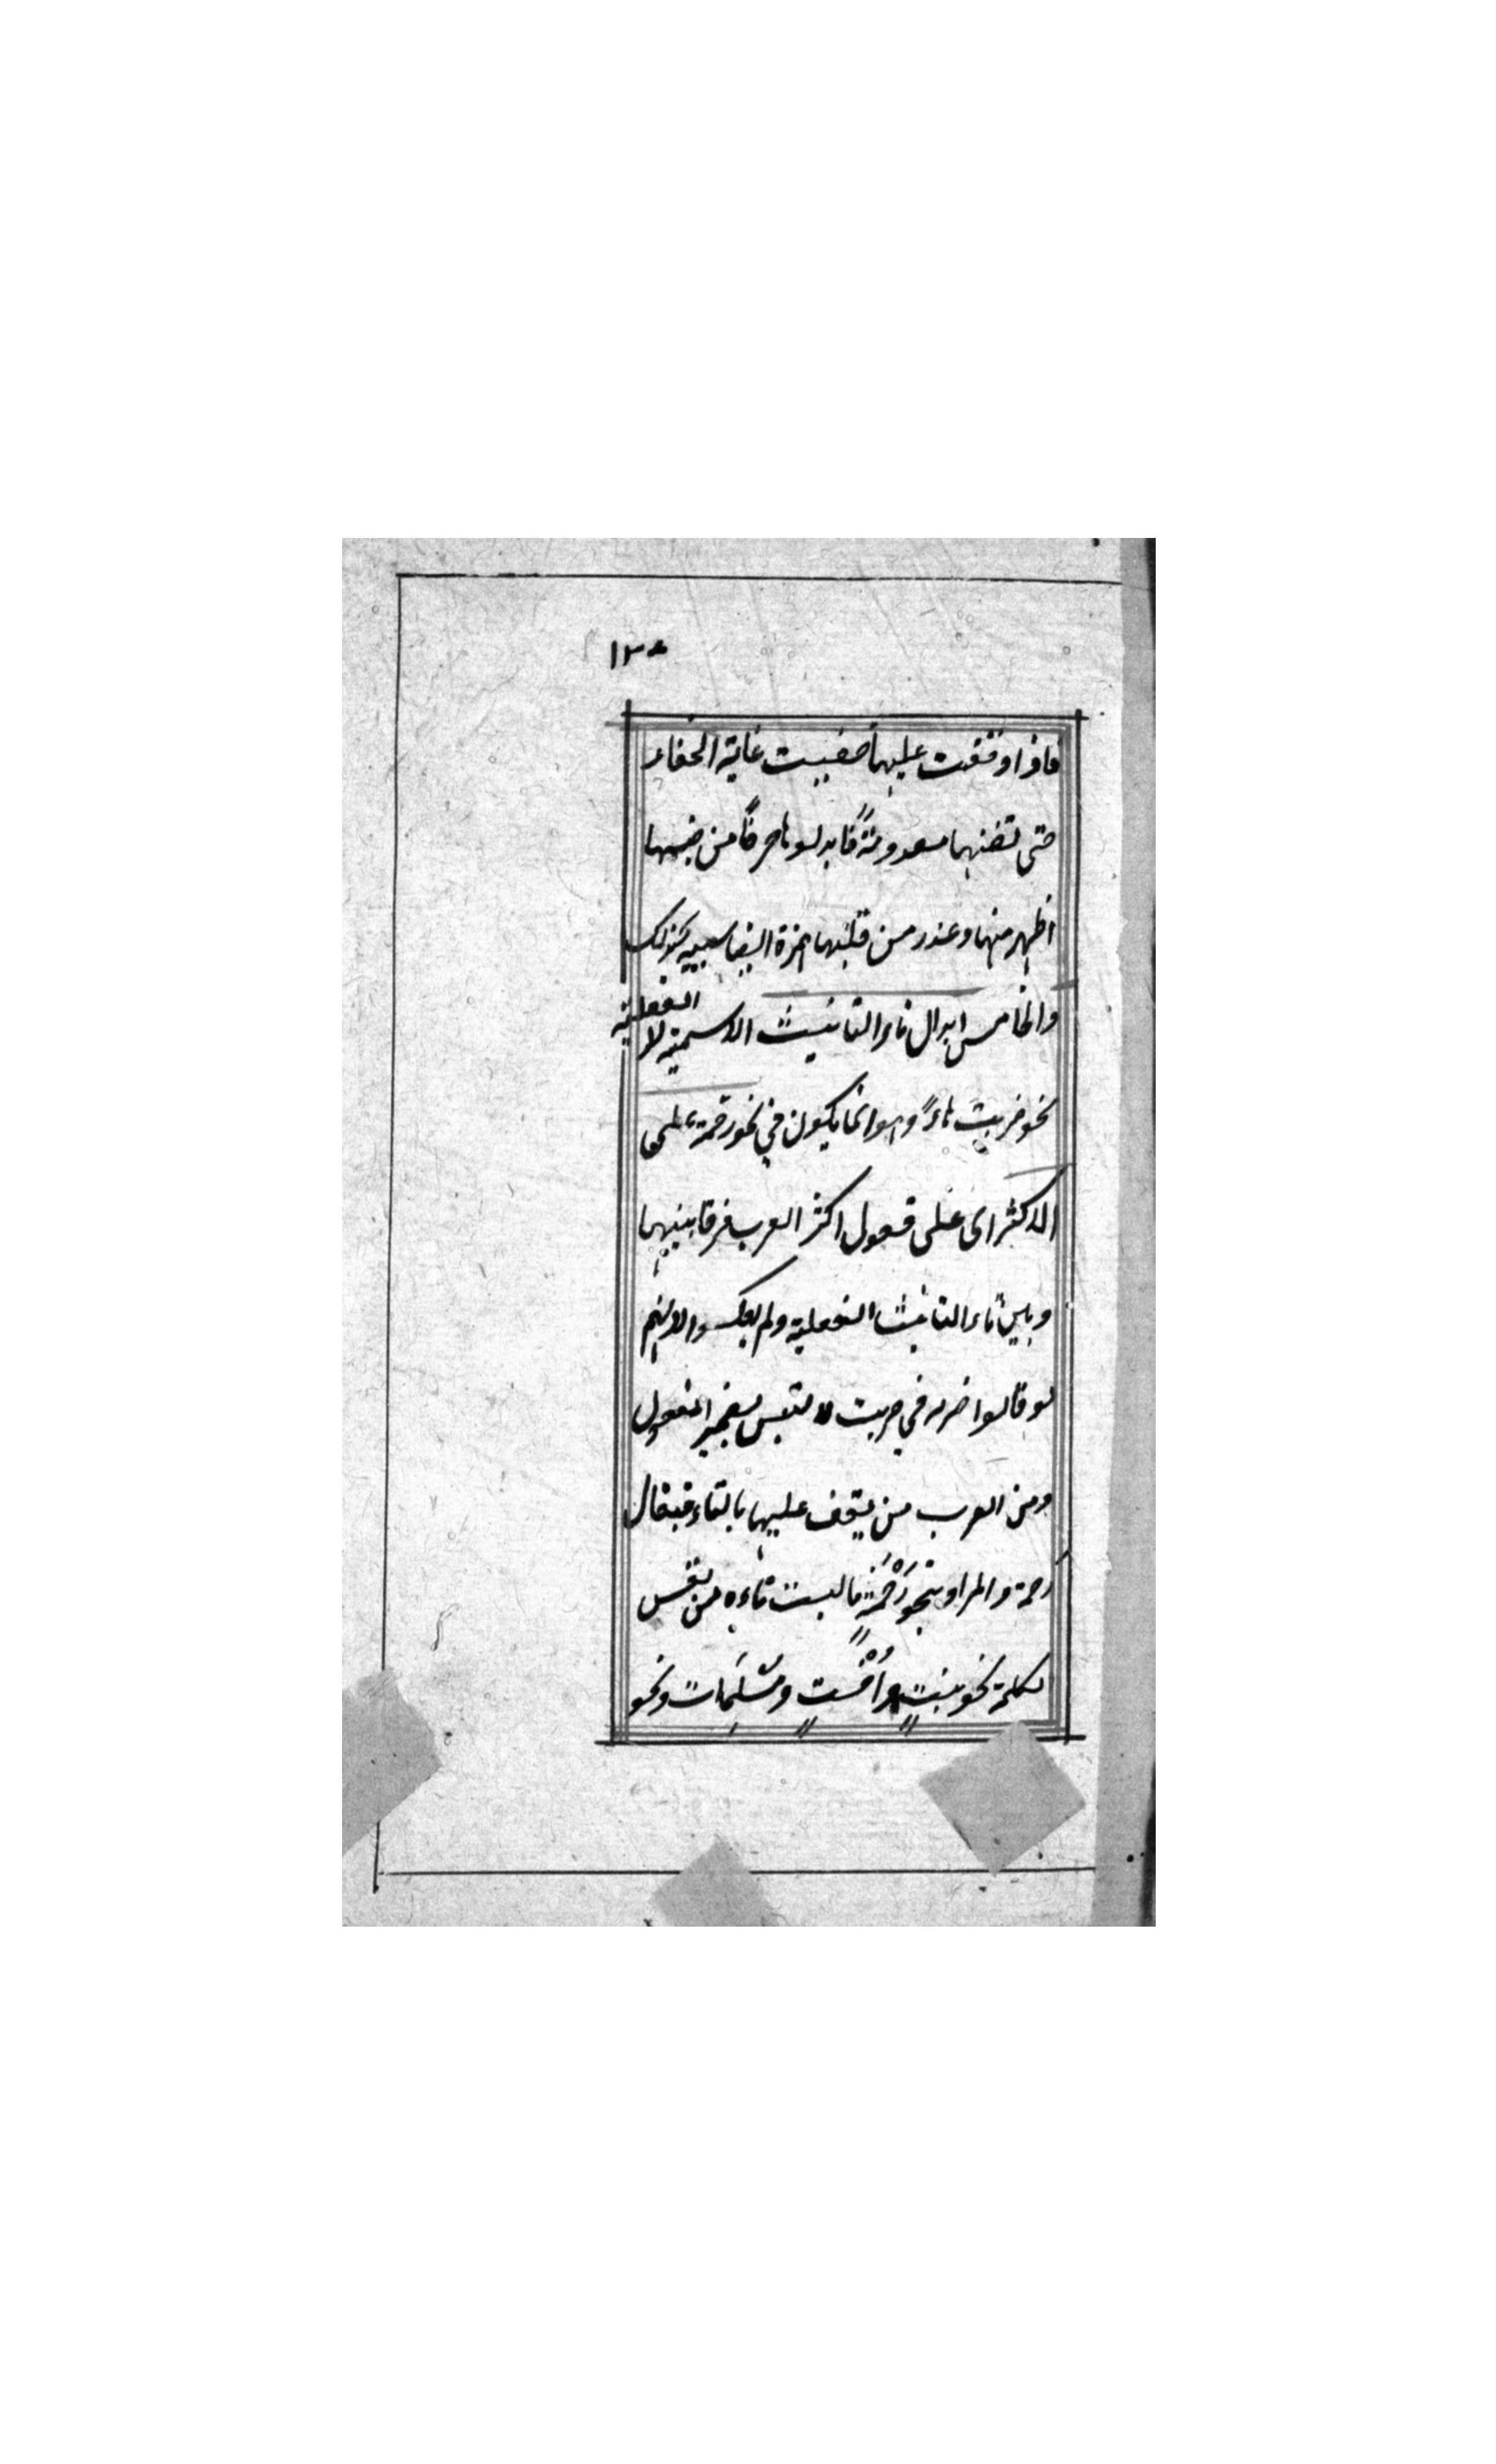 ١٣٨
فاذا وقفت عليها خفيت غاية الخفاء
حتى تظنها معدومةً فابدلوها حرفًا من جنسها
اظهر منها وعذر من قلبها همزة ايضا سببه كذلك
والخامس ابدال تاء التانيث الاسمية لا الفعلية
نحو ضربت هاءً وهو انما يكون في نحو رحمة على
الاكثر اى على قول اكثر العرب فرقا بينها
وبين تاء التانيث الفعلية ولم يعكسوا لانهم
لو قالوا ضربه في ضربت لالتبس بضمير المفعول
ومن العرب من يقف عليها بالتاء فيقال
رحمة والمراد بنحو رَحْمَةٍ ما ليست تاءه من نفس
الكلمة نحو بنتٍ وأُخْتٍ ومُسْلِمات ونحو